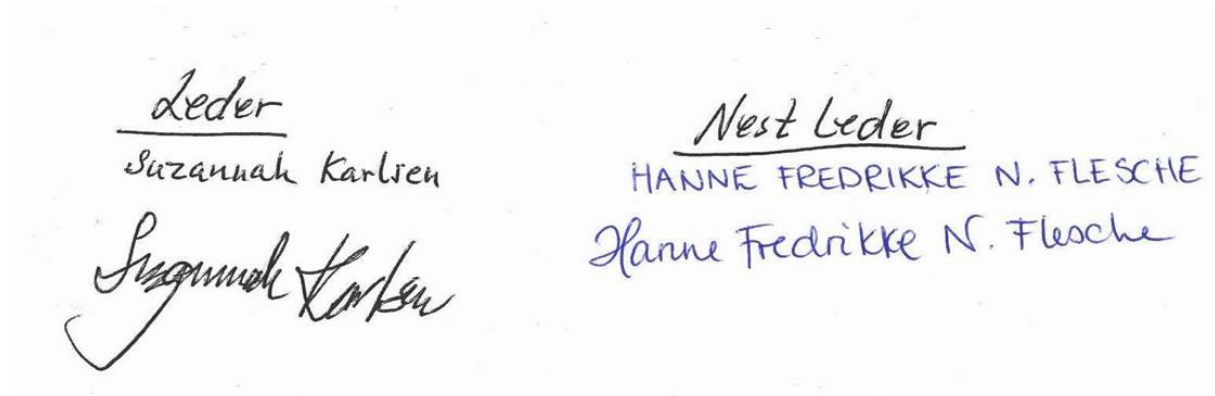 Leder
Suzannah Karlsen
Suzannah Karlsen
Nest Leder
HANNE FREDRIKKE N. FLESCHE
Hanne Fredrikke N. Flesche